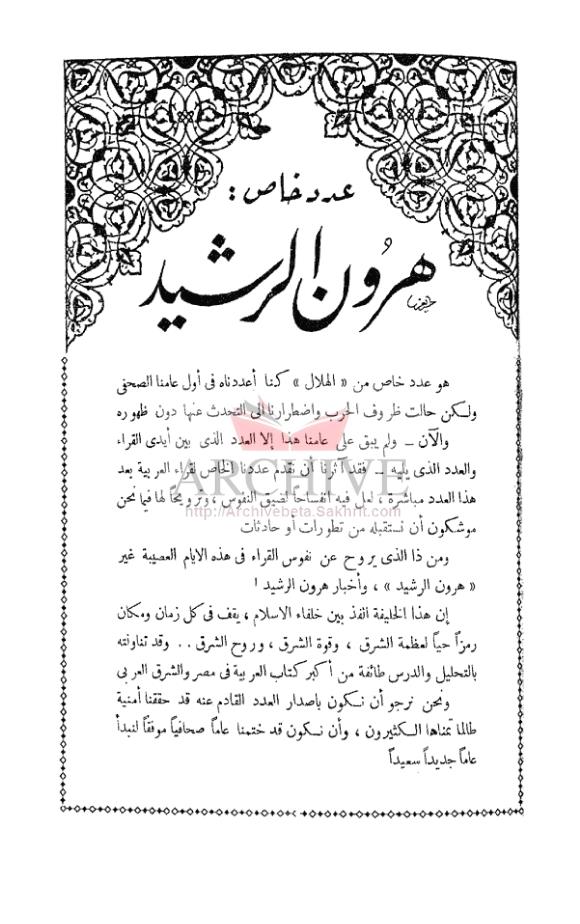 عدد خاص :
هرُون الرشيد
هو عدد خاص من « الهلال » كنا أعددناه فى أول عامنا الصحفى
ولكن حالت ظروف الحرب واضطرارنا الى التحدث عنها دون ظهوره
والآن – ولم يبق على عامنا هذا إلا العدد الذى بين أيدى القراء
والعدد الذى يليه – فقد آثرنا أن نقدم عددنا الخاص لقراء العربية بعد
ARCHIVE
هذا العدد مباشرة ، لعل فيه انفساحاً لضيق النفوس ، وترويحاً لها فيما نحن
http://Archivebeta.Sakhrit.com
موشكون أن نستقبله من تطورات أو حادثات
ومن ذا الذى يروح عن نفوس القراء فى هذه الايام العصيبة غير
« هرون الرشيد » ، وأخبار هرون الرشيد !
إن هذا الخليفة الفذ بين خلفاء الاسلام ، يقف فى كل زمان ومكان
رمزاً حياً لعظمة الشرق ، وقوة الشرق ، وروح الشرق . . وقد تناولته
بالتحليل والدرس طائفة من أكبر كتاب العربية فى مصر والشرق العربى
ونحن نرجو أن نكون باصدار العدد القادم عنه قد حققنا أمنية
طالما تمناها الكثيرون ، وأن نكون قد ختمنا عاماً صحافياً موفقاً لنبدأ
عاماً جديداً سعيداً